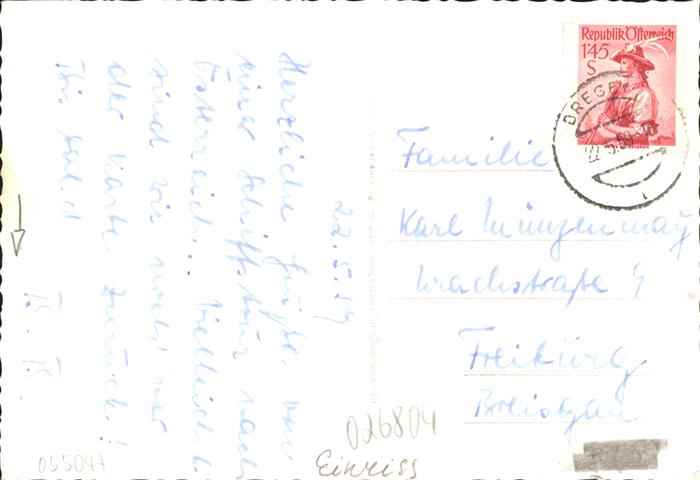 22.5.59
Herzliche Grüße, von
einer Schiffstour nach
Österreich. Vielleicht
sind wir noch vor
der Karte zurück!
Bis bald
Republik Österreich
1'45
S
BREGE
22.5.59
Familie
Karl Münzenmay
9
Freiburg
Breisgau
026804
Einriss
055047